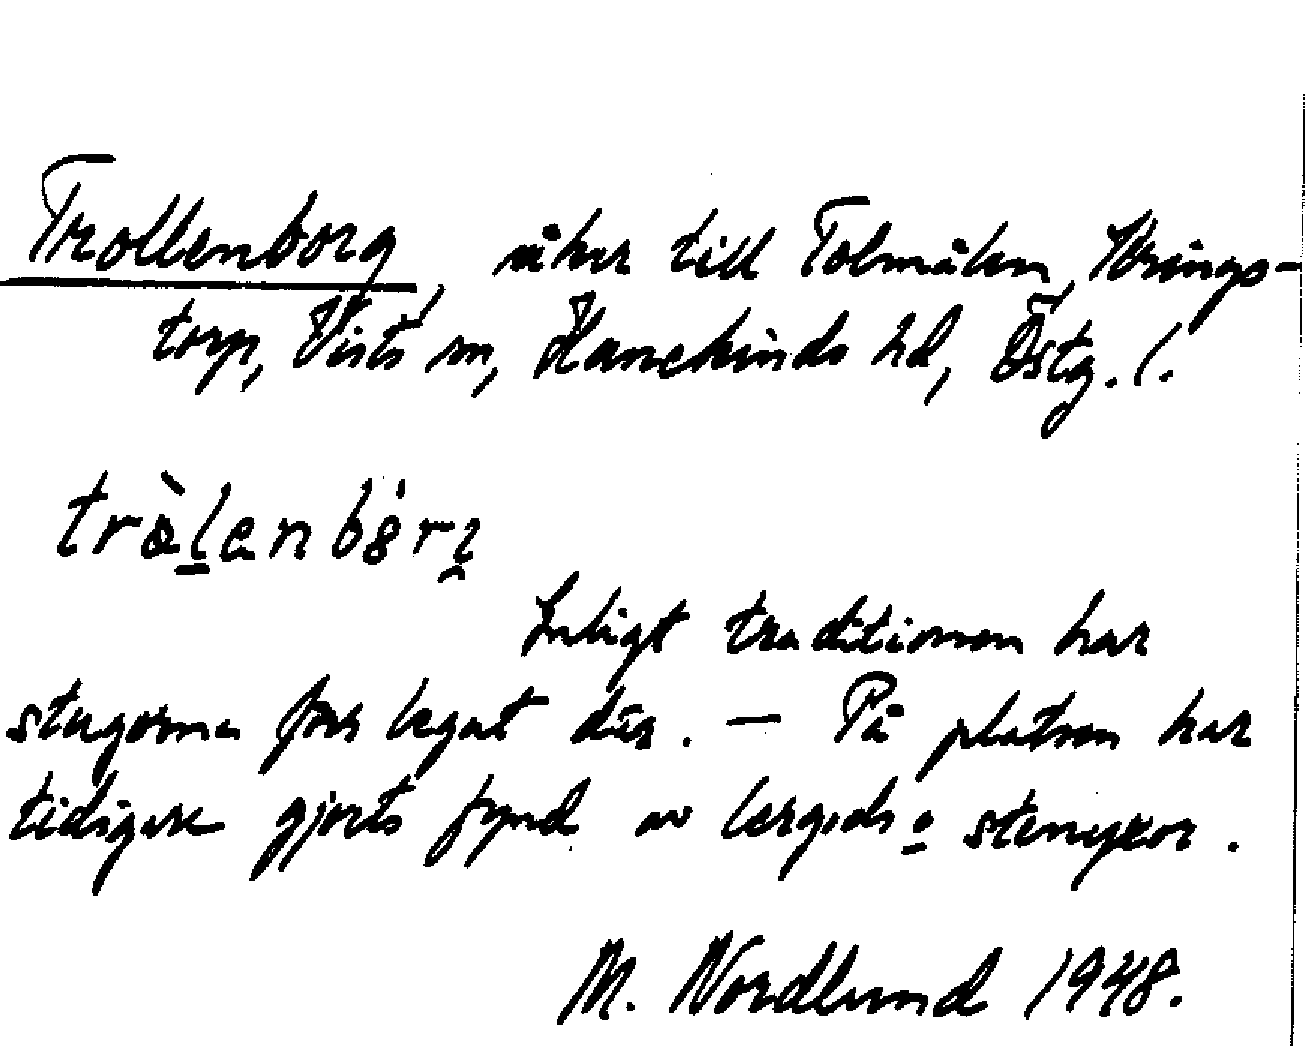 Trollenborg, åker till Tolmålen, Brings-
torp, Vists sn, Hanekinds hd, Östg. l.
tròlenbór
Enligt traditionen har
stugorna förr legat där. — På platsen har
tidigare gjorts fynd av lergods o stenyxor.
M. Nordlund 1948.